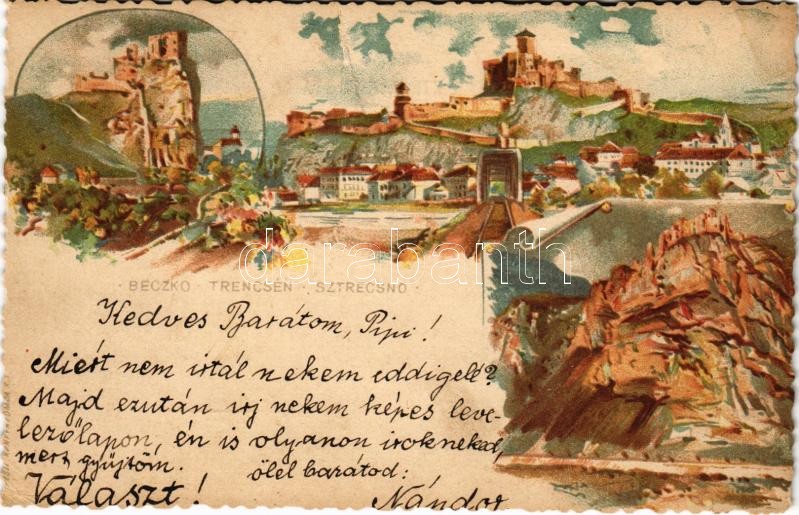 · BECZKO · TRENCSÉN · SZTRECSNO ·
darabanth
Kedves Barátom, Pipi!
Miért nem irtál nekem eddigelé?
Majd ezután irj nekem képes leve-
lezőlapon, én is olyanon irok neked,
mert gyüjtöm. ölel barátod:
Választ! Nándor